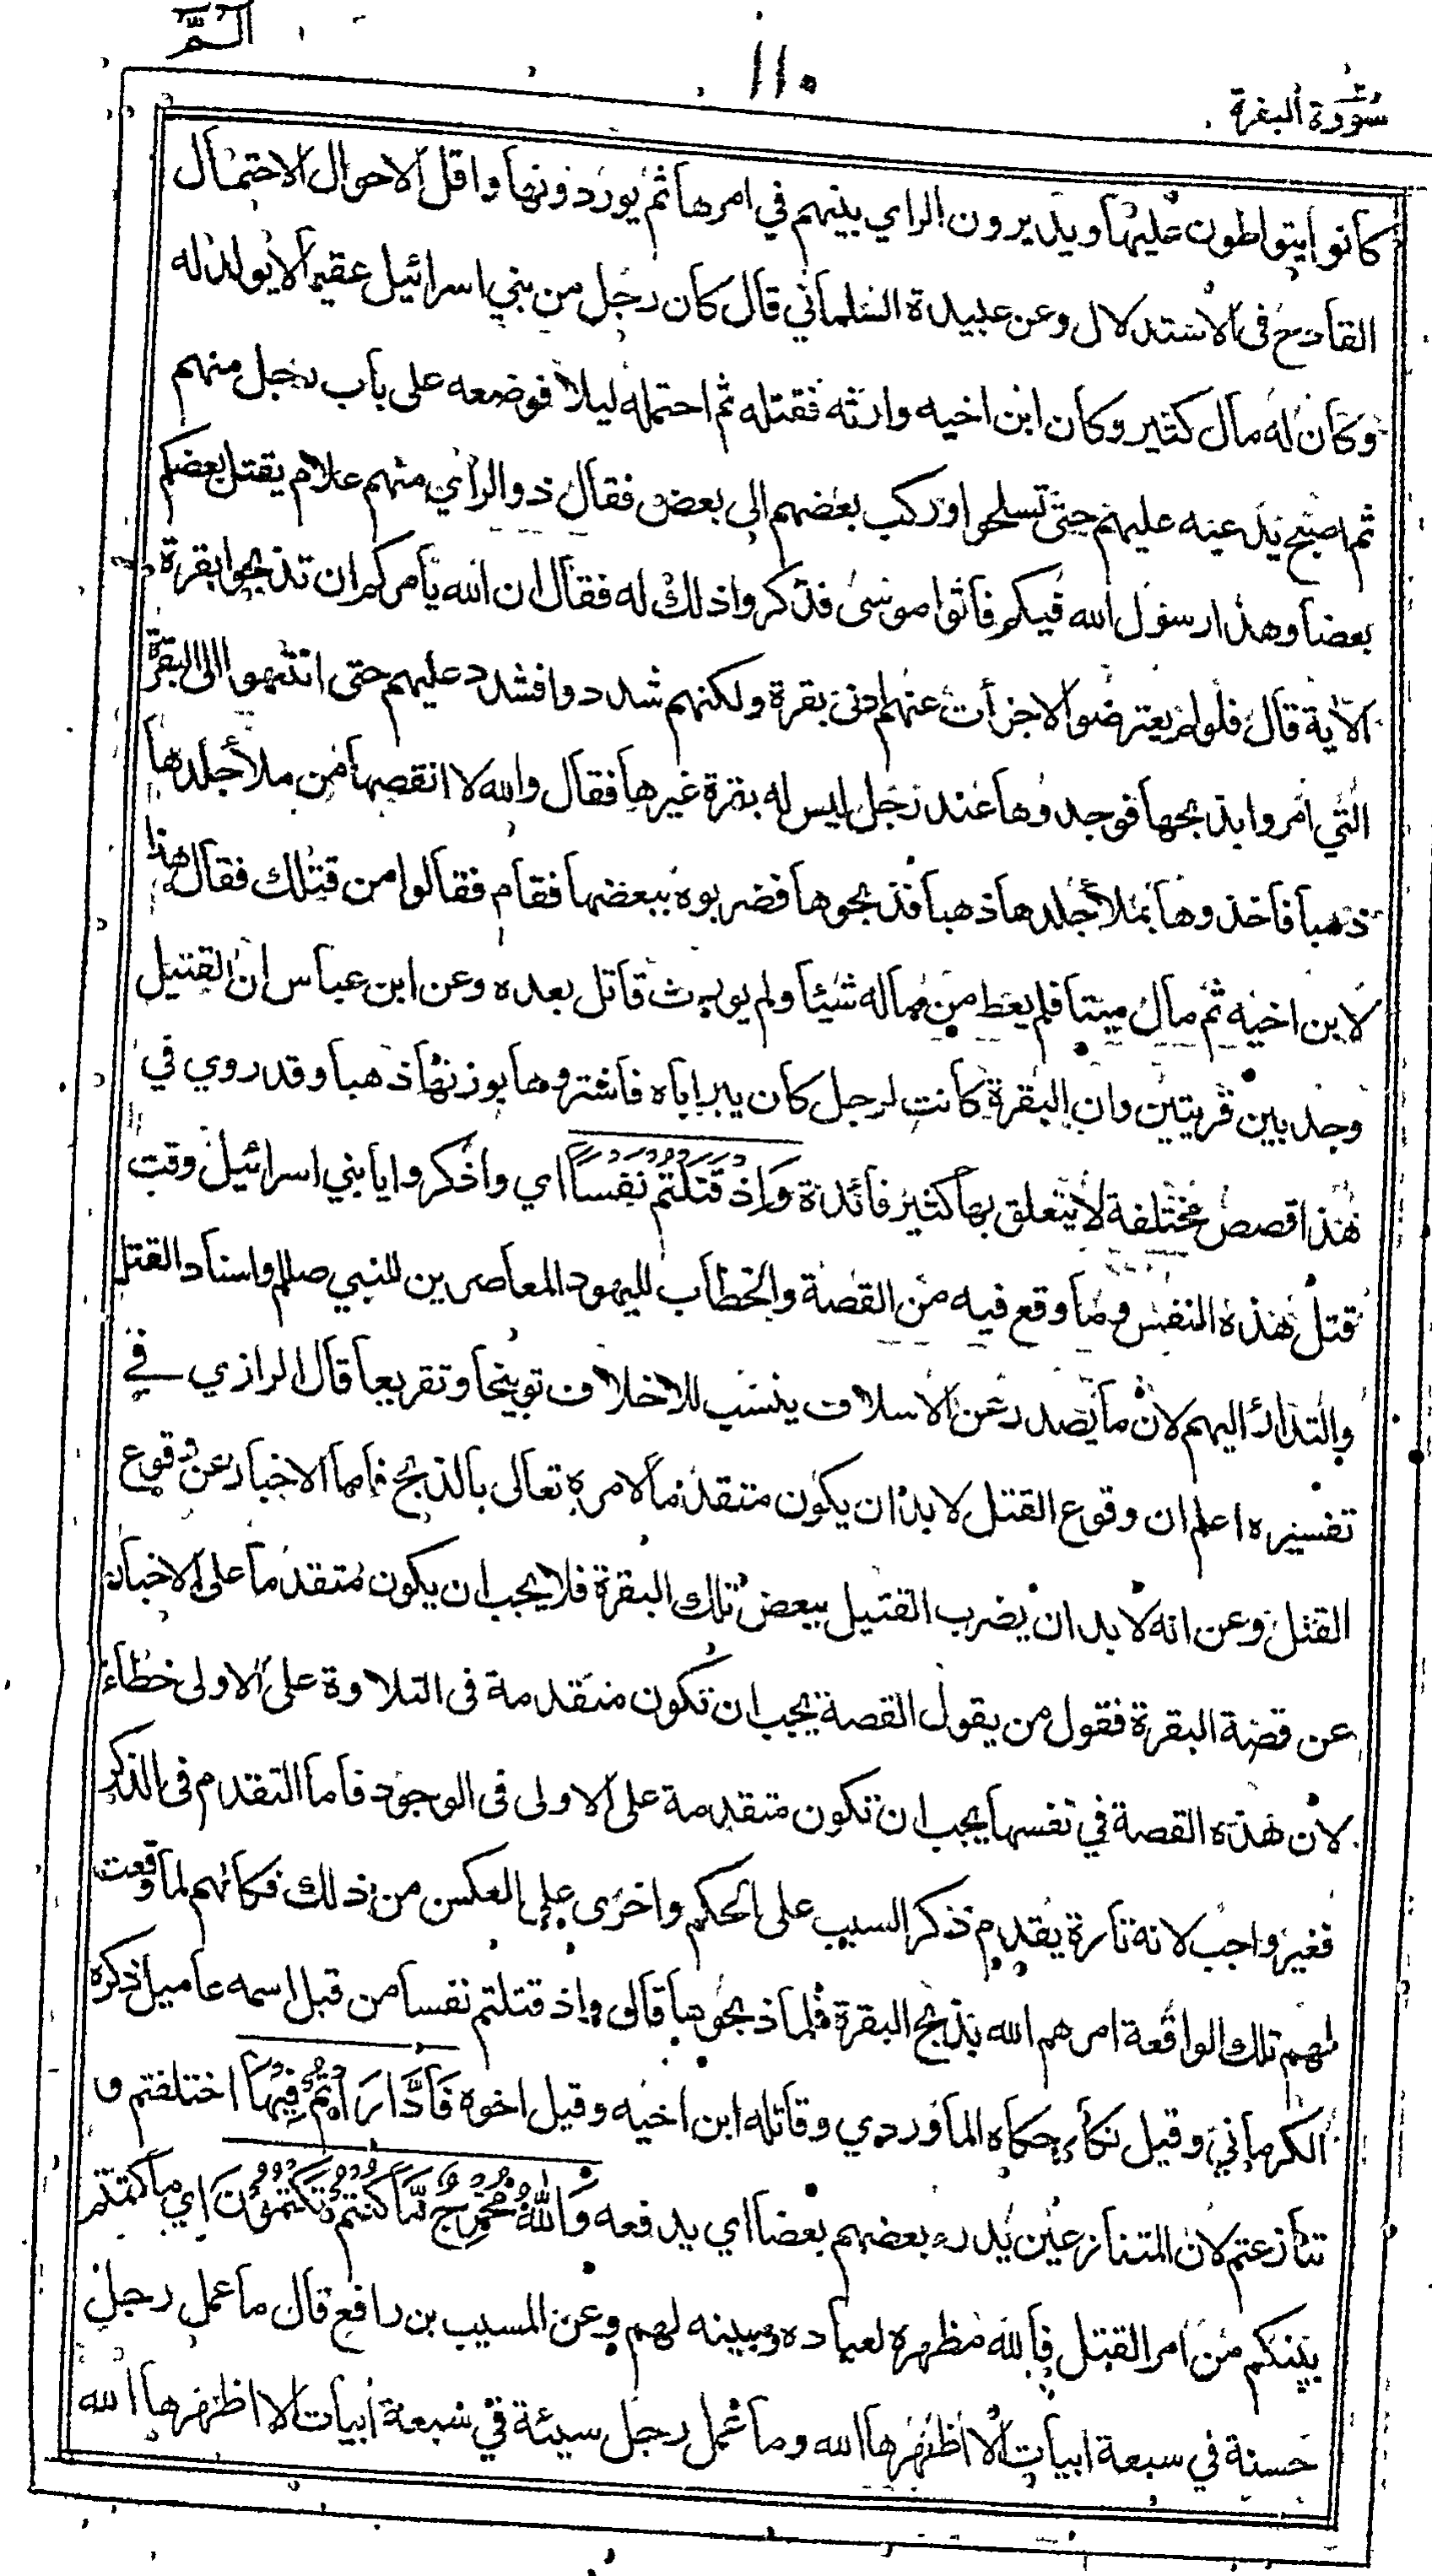 الـم
١١٠
سورة البقرة
كانوا يتواطون عليها ويديرون الراي بينهم في امرها ثم يوردونها واقل الاحوال الاحتمال
القادح فى الاستدلال وعن عبيدة السلماني قال كان رجل من بني اسرائيل عقيما لا يولد له
وكان له مال كثير وكان ابن اخيه وارثه فقتله ثم احتمله ليلا فوضعه على باب رجل منهم
ثم اصبح يدعيه عليهم حتى تسلحوا وركب بعضهم الى بعض فقال ذو الراي منهم علام يقتل بعضكم
بعضا وهذا رسول الله فيكم فاتوا موسى فذكروا ذلك له فقال ان الله يامركم ان تذبحوا بقرة
الآية قال فلو لم يعترضوا لاجزأت عنهم ادنى بقرة ولكنهم شددوا فشدد عليهم حتى انتهوا الى البقرة
التي امروا بذبحها فوجدوها عند رجل ليس له بقرة غيرها فقال والله لا انقصها من ملأ جلدها
ذهبا فاخذوها بملأ جلدها ذهبا فذبحوها فضربوه ببعضها فقام فقالوا من قتلك فقال هذا
لابن اخيه ثم مال ميتا فلم يعط من ماله شيئا ولم يورث قاتل بعده وعن ابن عباس ان القتيل
وجد بين قريتين وان البقرة كانت لرجل كان يبر اباه فاشتروها بوزنها ذهبا وقد روي في
هذا قصص مختلفة لا يتعلق بها كثير فائدة وَإِذْ قَتَلْتُمْ نَفْسًا اي واذكروا يا بني اسرائيل وقت
قتل هذه النفس وما وقع فيه من القصة والخطاب لليهود المعاصرين للنبي صللم واسناد القتل
والتدارأ اليهم لان ما يصدر عن الاسلاف ينسب للاخلاف توبيخا وتقريعا قال الرازي في
تفسيره اعلم ان وقوع القتل لا بد ان يكون متقدما لامره تعالى بالذبح فاما الاخبار عن وقوع
القتل وعن انه لا بد ان يضرب القتيل ببعض تلك البقرة فلا يجب ان يكون متقدما على الاخبار
عن قصة البقرة فقول من يقول القصة يجب ان تكون متقدمة فى التلاوة على الاولى خطاء
لان هذه القصة في نفسها يجب ان تكون متقدمة على الاولى فى الوجود فاما التقدم فى الذكر
فغير واجب لانه تارة يقدم ذكر السبب على الحكم واخرى على العكس من ذلك فكانهم لما وقعت
لهم تلك الواقعة امرهم الله بذبح البقرة فلما ذبحوها قال واذ قتلتم نفسا من قبل اسمه عاميل ذكره
الكرماني وقيل نكاء حكاه الماوردي وقاتله ابن اخيه وقيل اخوه فَادَّارَأْتُمْ فِيْهَا اختلفتم و
تنازعتم لان المتنازعين يدرء بعضهم بعضا اي يدفعه وَاللّٰهُ مُخْرِجٌ مَّا كُنْتُمْ تَكْتُمُوْنَ اي ما كتمتم
بينكم من امر القتل فالله مظهره لعباده ومبينه لهم وعن المسيب بن رافع قال ما عمل رجل
حسنة في سبعة ابيات الا اظهرها الله وما عمل رجل سيئة في سبعة ابيات الا اظهرها الله